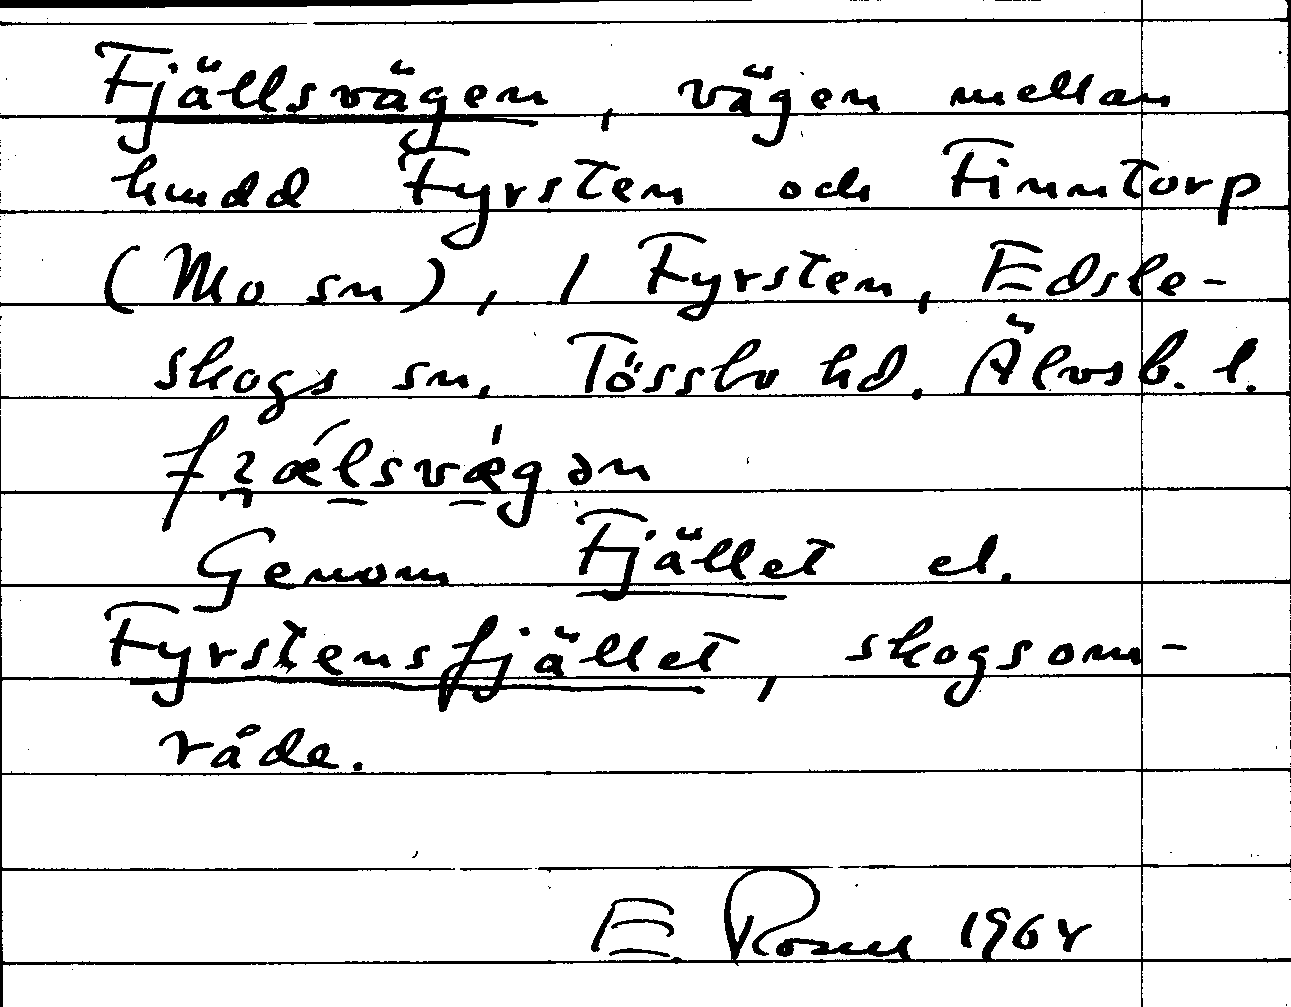 Fjällsvägen, vägen mellan
hmdd Fyrsten och Finntorp
(Mo sn), / Fyrsten, Edsle-
skogs sn, Tössbo hd. Älvsb. l.
Genom Fjället el.
Fyrstensfjället, skogsom-
råde.
E. 1964